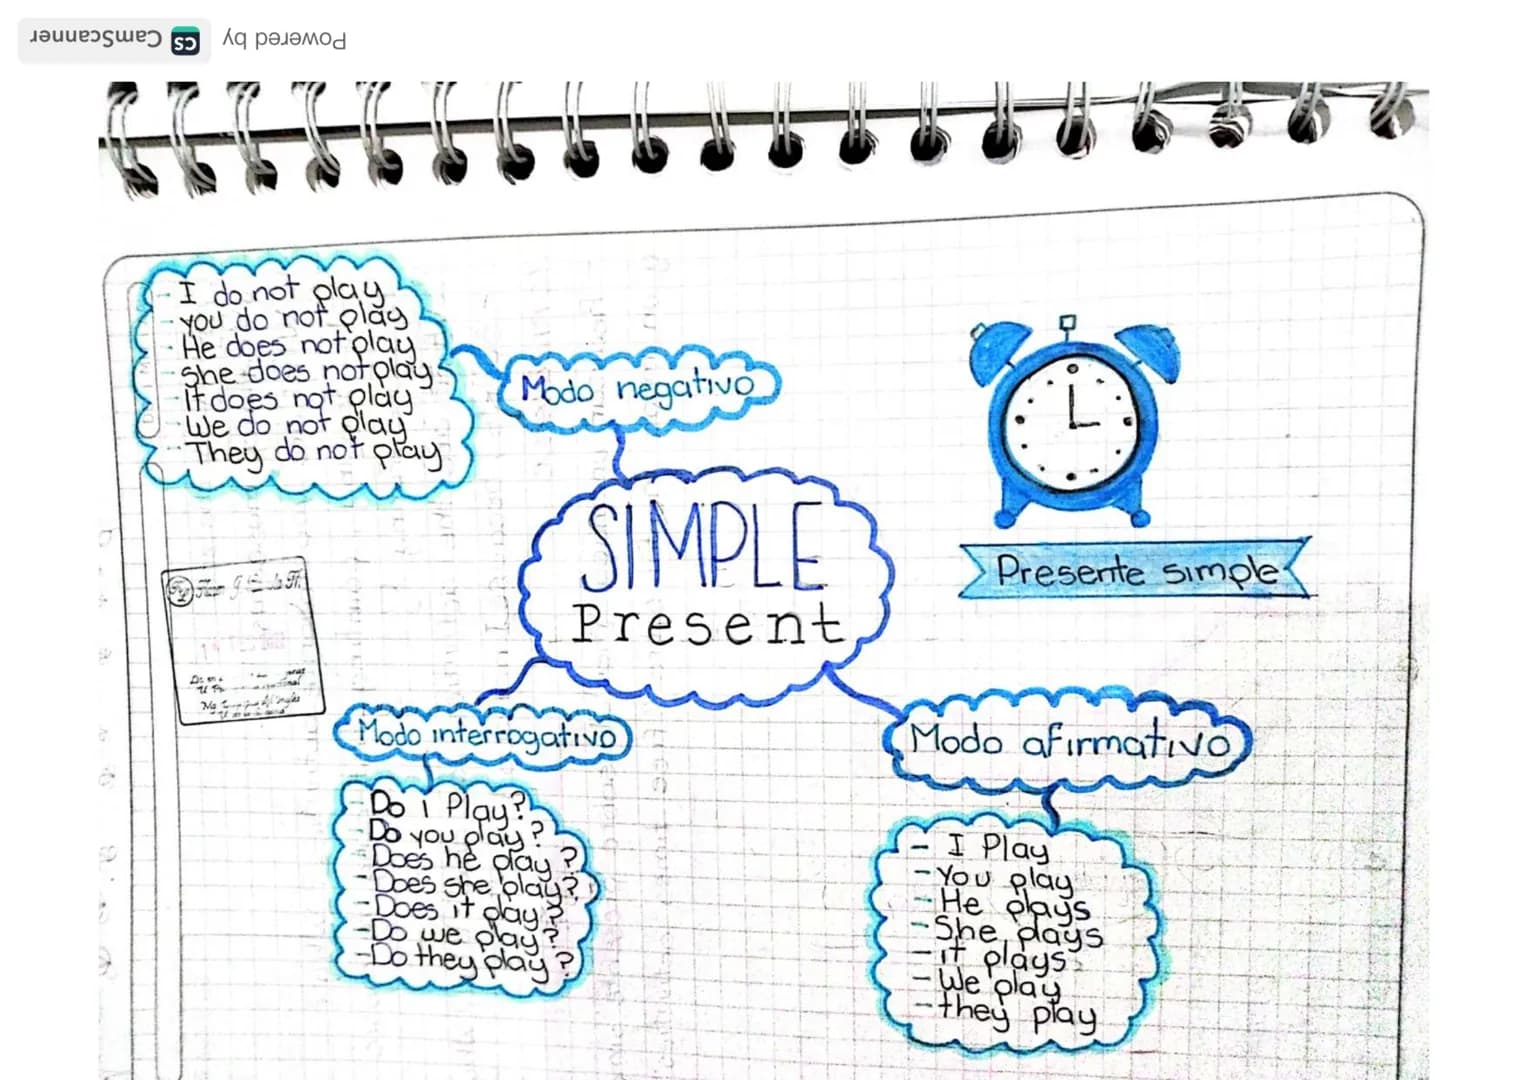 Powered by CS CamScanner
- I do not play
- you do not play
- He does not play
- she does not play
- it does not play
- We do not play
- They do not play
Modo negativo
SIMPLE
Present
Presente simple
Modo interrogativo
- Do i Play?
- Do you play?
- Does he play?
- Does she play?
- Does it play?
- Do we play?
- Do they play?
Modo afirmativo
- I Play
- You play
- He plays
- She plays
- it plays
- We play
- they play